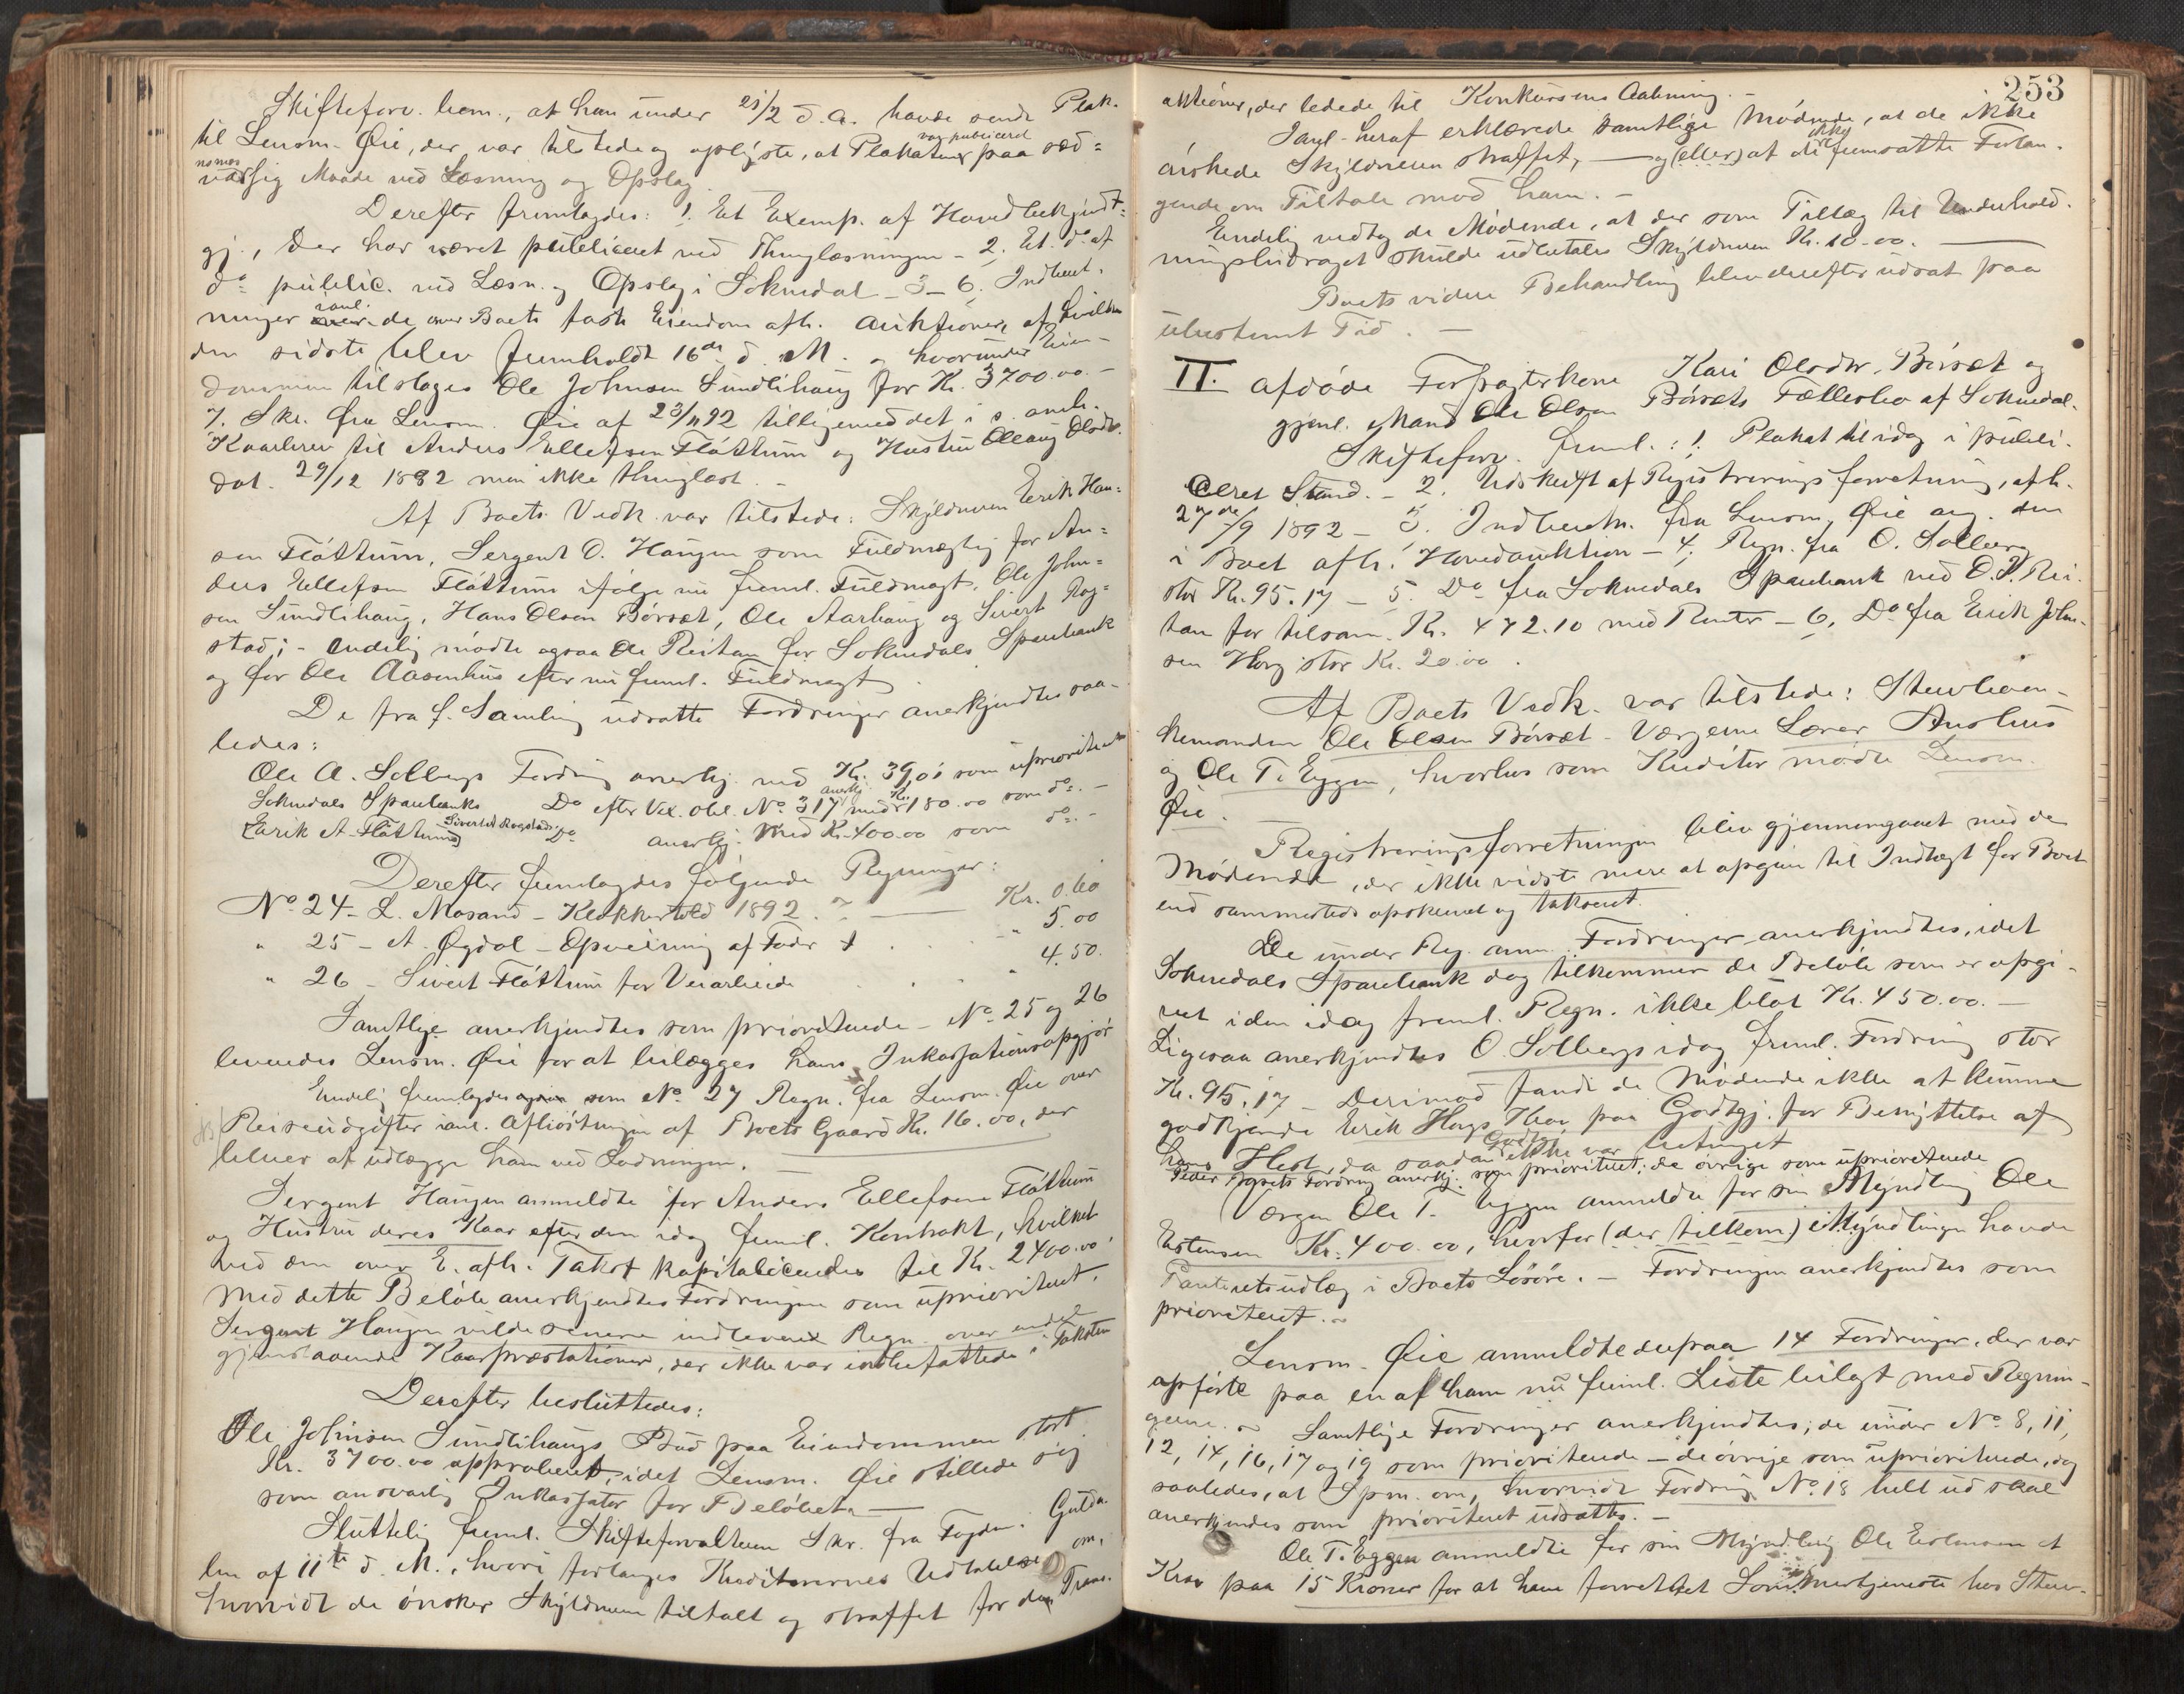 Skifteforv. bem., at han under 21/2 d. A. havde sendt Plak.
til Lensm. Øie, der var tilstede og oplyste, at Plakaten var publiceret paa sæd=
vansmæssig Maade ved Læsning og Opslag.
Derefter fremlagdes: 1. Et Exemp. af Hovedbekjendt=
gj., der har været publiceret ved Thinglæsningen - 2. Et do af
do public. ved Læsn. og Opslag i Soknedal - 3-6. Indberet-
ninger de over Boets faste Eiendom afh. Auktioner, af hvilke
den sidste blev fremholdt 16de d. M. og hvorunder Eien-
dommen tilsloges Ole Johnsen Sundlihaug for Kr. 3700.00. -
7. Skr. fra Lensm. Øie af 23/11 92 tilligemed det i s. omh.
Kaarbrev til Anders Ellefsen Fløttum og Hustru Ollaug Olsdtr.
dat. 29/12 1882 men ikke thinglæst. -
Af Boets Vedk. var tilstede: Skyldneren Erik Han=
sen Fløttum, Sergent O. Haugen som Fuldmægtig for An=
ders Ellefsen Fløttum ifølge nu freml. Fuldmagt, Ole John=
sen Sundlihaug, Hans Olsen Børset, Ole Aarhaug og Sivert Rog=
stad; - endelig mødte ogsaa Ole Reitan for Soknedals Sparebank
og for Ole Aasenhus efter nu freml. Fuldmagt.
De fra f. Samling udsatte Fordringer anerkjendtes saa-
ledes:
Ole A. Solbergs Fordring anerkj. med Kr. 39,01 som uprioriteret
Soknedals Sparebanks Do efter Vex. obl. No 317 anerkj. med Kr. 180.00 som do. -
(Erik A. Fløttums) Sivert Rogstads Do anerkj. med Kr. 400.00 som do. -
Derefter fremlagdes følgende Regninger:
No 24 - L. Mosand - Klokkertold 1892. Kr. 0.60
" 25 - A. Øgdal - Opveining af Foder " 5.00
" 26 - Sivert Fløttum for Vaarbeide " 4.50.
Samtlige anerkjendtes som prioriterede - No 25 og 26
leveredes Lensm. Øie for at bilægges hans Inkassationsopgjør
Endelig fremlagdes som No 27 Regn. fra Lensm. Øie over
Reiseudgifter i anl. Afløstningen af Boets Gaard Kr. 16.00, der
bliver at udlægge ham ved Lodningen.
Sergent Haugen anmeldte for Anders Ellefsen Fløttum
og Hustru deres Kaar efter den idag freml. Kontrakt, hvilket
ved den over E. afh. Takst kapitaliceredes til Kr. 2400.00.
Med dette Beløb anerkjendtes Fordringen som uprioriteret.
Sergent Haugen vilde senere indlevere Regn. over endel
gjenstaaende Kaarpræstationer, der ikke var indbefattede i Taksten
Derefter besluttedes:
Ole Johnsen Sundlihaugs Bud paa Eiendommen stort
Kr. 3700.00 approberet, idet Lensm. Øie stillede sig
som ansvarlig Inkassator for Beløbet. -
Sluttelig freml. Skifteforvalteren Skr. fra Fogden i Gulda-
len af 11te d. M., hvori forlanges Kreditorernes Udtalelse om,
hvorvidt de ønsker Skyldneren tiltalt og straffet for den Trans-
253
aktioner, der ledede til Konkursens Aabning. -
I anl. heraf erklærede samtlige Mødende, at de ikke
ønskede Skyldneren straffet, - og (eller) at de ikke fremsatte Forlan-
gende om Tiltale mod ham. -
Endelig vedtog de Mødende, at der som Tillæg til Underhold-
ningsbidraget skulde udbetales Skyldneren Kr. 10.00. -
Boets videre Behandling blev derefter udsat paa
ubestemt Tid. -
II. afdøde Forpagterkone Kari Olsdtr. Børset og
gjenl. Mand Ole Olsen Børsets Fællesbo af Soknedal.
Skifteforv. freml.: 1. Plakat til idag i publi-
ceret Stand. - 2. Udskrift af Registreringsforretning, afh.
27de/9 1892 - 3. Indberetn. fra Lensm. Øie ang. den
i Boet afh. Hovedauktion - 4. Regn. fra O. Solberg
stor Kr. 95.17 - 5. Do fra Soknedals Sparebank ved O. J. Rei-
tan for tilsam. Kr. 472.10 med Renter - 6. Do fra Erik John-
sen Horg stor Kr. 20.00.
Af Boets Vedk. var tilstede: Stervboen-
kemanden Ole Olsen Børset - Værgerne Lærer Aushus
og Ole T. Eggen, hvorhos som Kreditor mødte Lensm.
Øie.
Registreringsforretningen blev gjennemgaaet med de
Mødende, der ikke vidste mere at opgive til Indtægt for Boet
end sammesteds opskrevet og takseret.
De under Reg. anm. Fordringer anerkjendtes, idet
Soknedals Sparebank dog tilkommer de Beløb som er opgi-
vet i den idag freml. Regn. ikke blot Kr. 450.00. -
Ligesaa anerkjendtes O. Solbergs idag freml. Fordring stor
Kr. 95.17 - Derimod fandt de Mødende ikke at kunne
godkjende Erik Horgs Krav paa Godtgj. for Benyttelse af
hans Hest, da saadan Godtgj. ikke var betinget
Peder Fordring anerkj. som prioriteret; de øvrige som uprioriterede
Værgen Ole T. Eggen anmeldte for sin Myndling Ole
Estensen Kr. 400.00, hvorfor (der tilkom) Myndlingen havde
Panteretsudlæg i Boets Løsøre. - Fordringen anerkjendtes som
prioriteret. -
Lensm. Øie anmeldte derpaa 14 Fordringer, der var
opførte paa en af ham nu freml. Liste bilagt med Regnin-
gerne. - Samtlige Fordringer anerkjendtes; de under No 8, 11,
12, 14, 16, 17 og 19 som prioriterede - de øvrige som uprioriterede, dog
saaledes, at Spm. om, hvorvidt Fordring No 18 helt ud skal
anerkjendes som prioriteret udsattes. -
Ole T. Eggen anmeldte for sin Myndling Ole Estensen et
Krav paa 15 Kroner for at have forrettet Sommertjeneste hos Sterv-